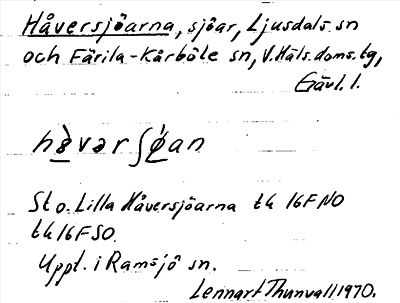 Håversjöarna, sjöar, Ljusdals sn
och Färila-Kårböle sn, V. Häls. doms. tg,
Gävl. l.
St o. Lilla Håversjöarna tk 16F NO
tk 16F SO.
Uppt. i Ramsjö sn.
Lennart Thunvall 1970.